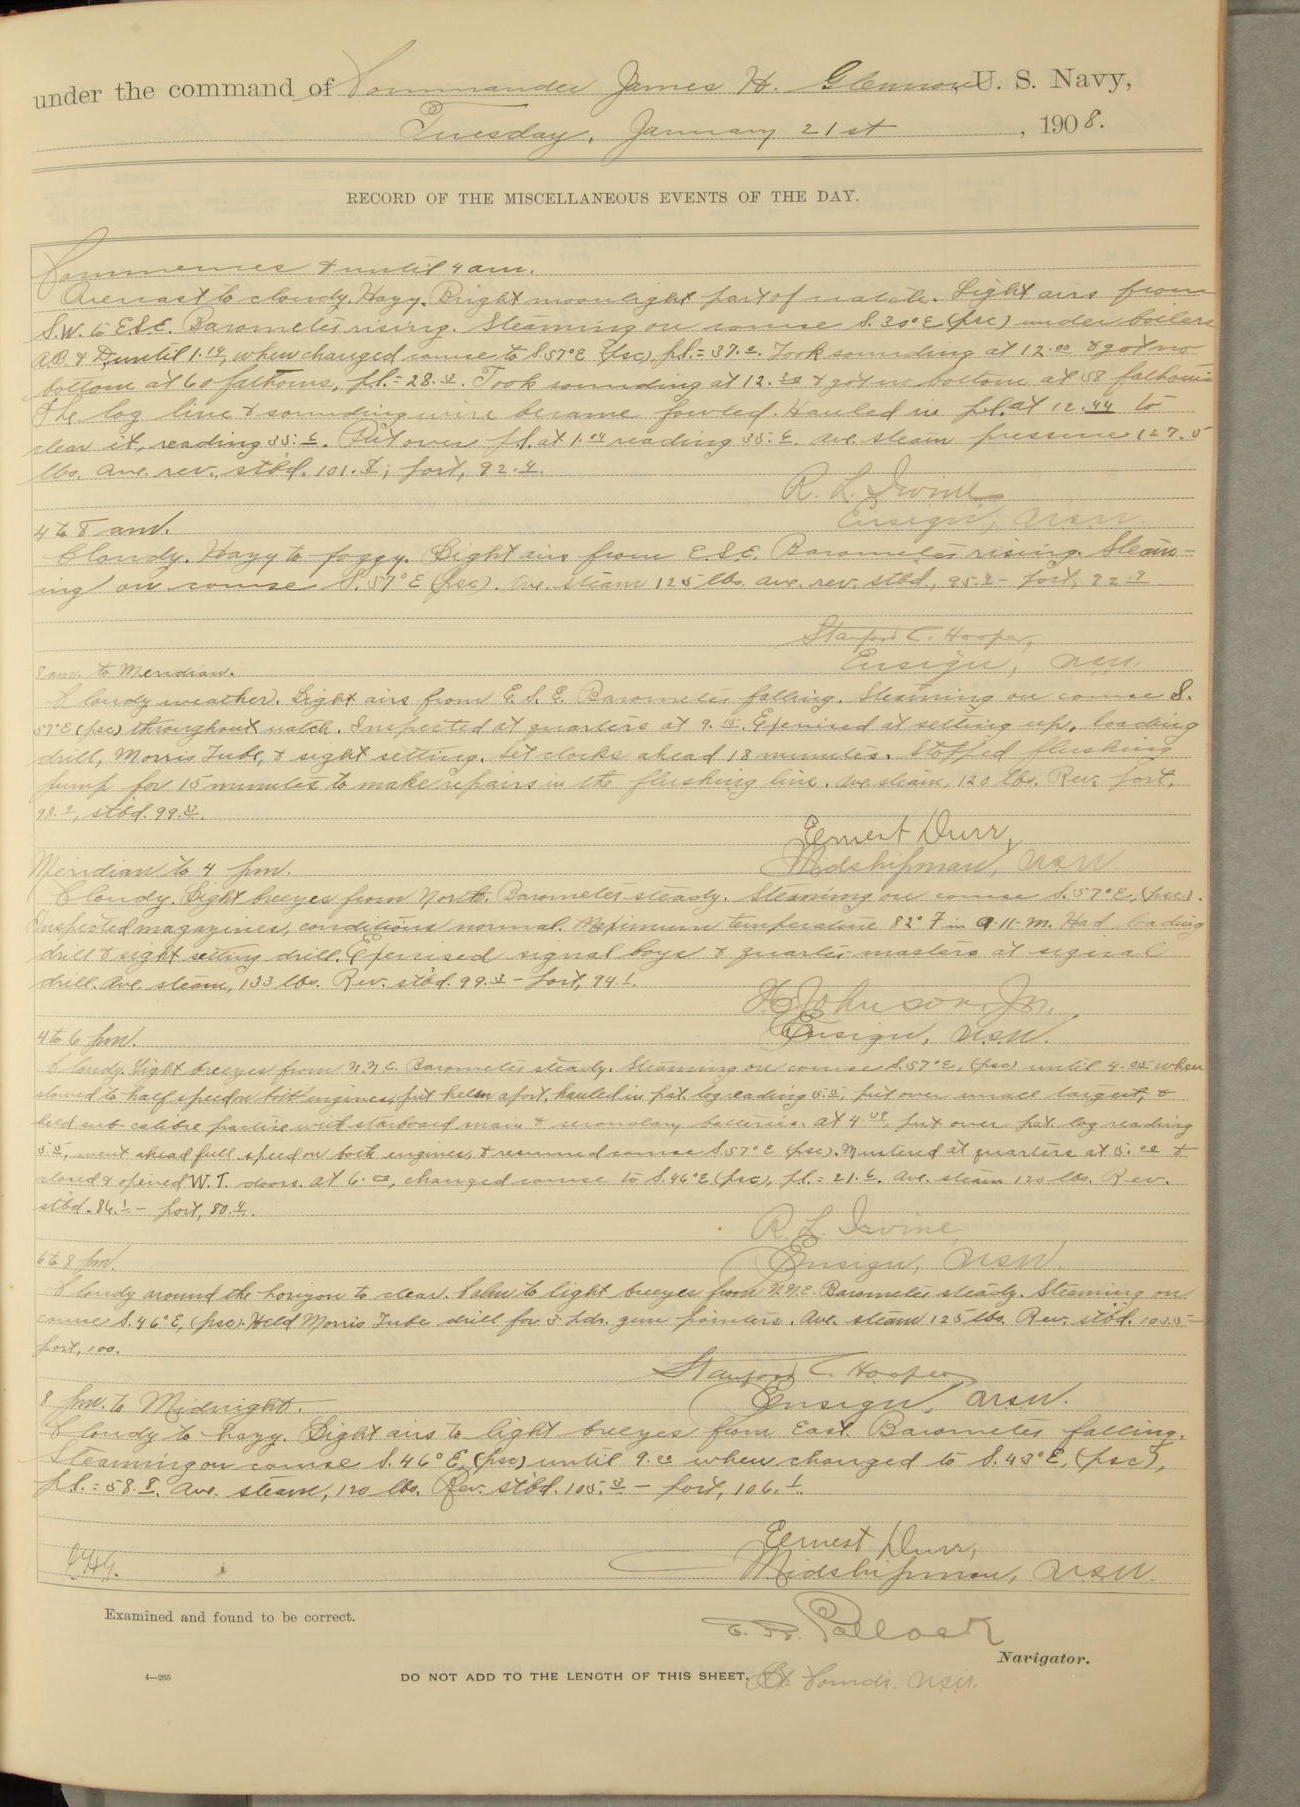 under the command of Commander James H. Glennon, U. S. Navy,
Tuesday, January 21st, 1908.
RECORD OF THE MISCELLANEOUS EVENTS OF THE DAY.
Commences & until 4 am.
Overcast to cloudy. Hazy. Bright moonlight part of watch. Light airs from
S.W. to E.S.E. Barometer rising. Steaming on course S. 30° E (psc) under boilers
A.B. & D, until 1.14, when changed course to S. 57° E (psc), p.l. = 37. Took sounding at 12.00 & got no
bottom at 60 fathoms, p.l. = 28. Took sounding at 12.30 & got no bottom at 58 fathoms
The log line & sounding wire became fowled. Hauled in p.l. at 12.44 to
clear it, reading Put over p.l. at reading Ave. steam pressure 127.5
lbs. Ave. rev., stbd. 101.8; port, 92.4.
R. L. Irvine
Ensign, USN.
4 to 8 am.
Cloudy. Hazy to foggy. Light airs from E.S.E. Barometer rising. Steam-
ing on course S. 57° E (psc). Ave. steam 125 lbs. Ave. rev. stbd., - port, 92.9
Stanford C. Hooper,
Ensign, USN.
8 am. to Meridian.
Cloudy weather. Light airs from E.S.E. Barometer falling. Steaming on course S.
57° E (psc) throughout watch. Inspected at quarters at 9.15. Exercised at setting up, loading
drill, Morris Tube, & sight setting. Set clocks ahead 18 minutes. Stopped flushing
pump for 15 minutes to make repairs in the flushing line. Ave steam, 120 lbs. Rev. port,
stbd. 99.
Ernest Durr,
Midshipman, USN
Meridian to 4 pm.
Cloudy. Light breezes from North. Barometer steady. Steaming on course S. 57° E, (psc).
Inspected magazines, conditions normal. Maximum temperature 82° F in A-11-M. Had loading
drill & sight setting drill. Exercised signal boys & quarter-masters at signal
drill. Ave. steam, 133 lbs. Rev. stbd. 99. - port, 94.1.
H. Johnson, Jr.,
Ensign, USN.
4 to 6 pm.
Cloudy. Light breezes from N.N.E. Barometer steady. Steaming on course S. 57° E, (psc) until 4.05 when
slowed to half speed on both engines, put helm aport, hauled in pat. log reading put over small target, &
held sub-calibre practice with starboard main & secondary batteries. At put over pat. log reading
went ahead full speed on both engines, & resumed course S. 57° E (psc). Mustered at quarters at 5.00 &
closed & opened W.T. doors. At 6.00, changed course to S. 46° E (psc), p.l. = 21.6. Ave. steam 120 lbs. Rev.
stbd. 86.1 - port, 80.4.
R. L. Irvine,
Ensign, USN.
6 to 8 pm.
Cloudy around the horizon to clear. Calm to light breezes from N.N.E. Barometer steady. Steaming on
course S. 46° E, (psc). Held Morris Tube drill for pdr. gun pointers. Ave. steam 125 lbs. Rev. stbd. 103.5 -
port, 100.
Stanford C. Hooper
Ensign, USN.
8 pm. to Midnight.
Cloudy to hazy. Light airs to light breezes from East. Barometer falling.
Steaming on course S. 46° E, (psc) until 9.00 when changed to S. 43° E, (psc),
p.l. = 58.8. Ave. steam, 120 lbs. Rev. stbd. 105. - port, 106.1.
Ernest Durr,
Midshipman, USN.
Examined and found to be correct.
E. F. Pollock
Navigator.
4—265
DO NOT ADD TO THE LENGTH OF THIS SHEET.
Lt Comdr. USN.